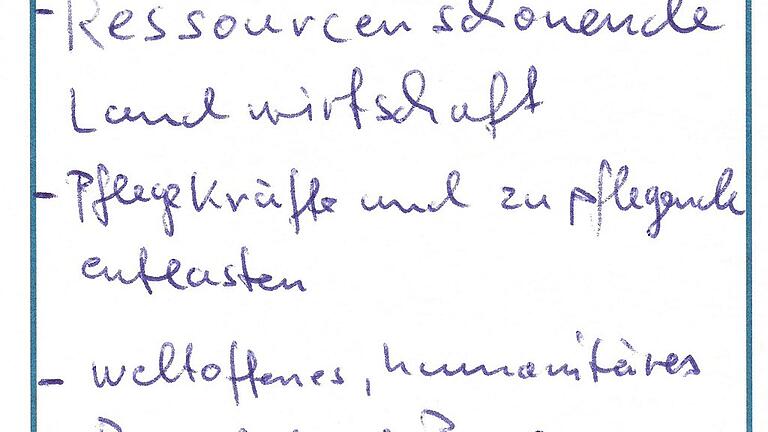 - Ressourcen schonende
Landwirtschaft
- Pflegekräfte und zu pflegende
entlasten
- weltoffenes, humanitäres